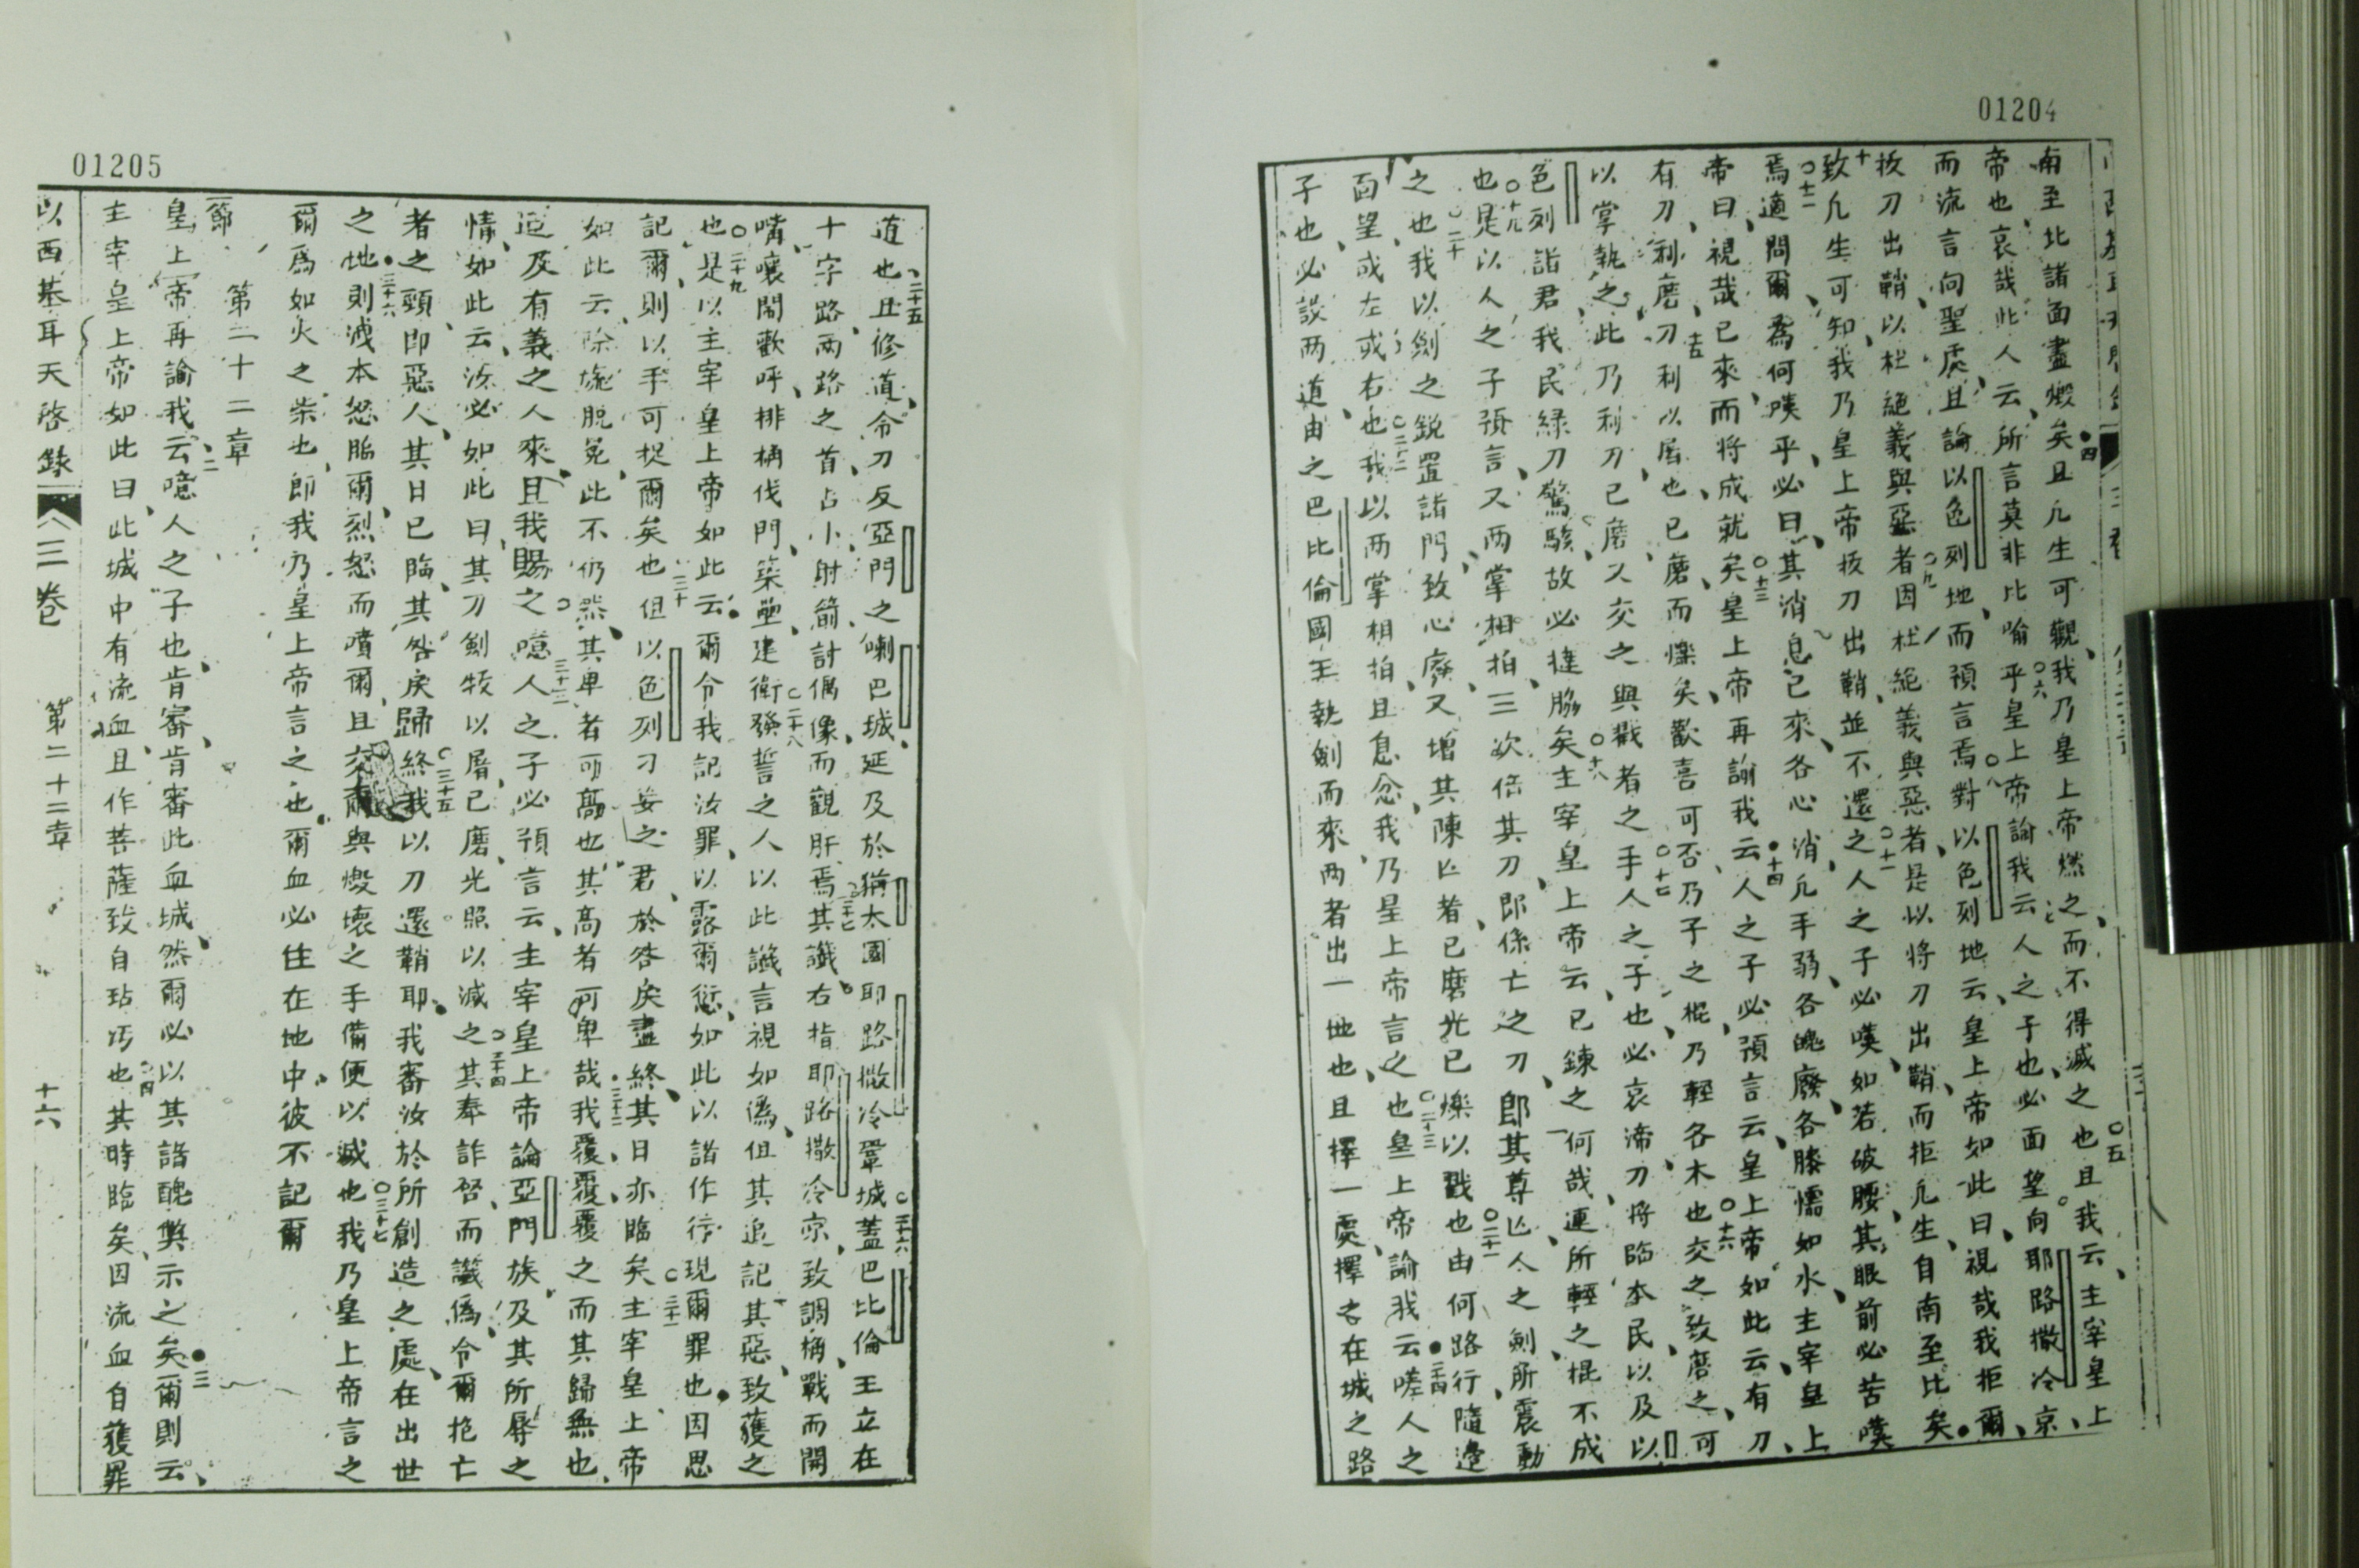 01204
南至北諸面盡燬矣且凢生可觀我乃皇上帝燃之而不得滅之也且我云主宰皇上
帝也哀哉此人云所言莫非比喻乎皇上帝諭我云人之子也必面望向耶路撒冷京
而流言向聖处且論以色列地而預言焉對以色列地云皇上帝如此曰視哉我拒爾
拔刀出鞘以杜絕義與惡者因杜絕義與惡者是以将刀出鞘而拒凢生自南至北矣
致凢生可知我乃皇上帝拔刀出鞘並不還之人之子必嘆如若破腰其眼前必苦嘆
焉適問爾為何嘆乎必曰其消息已來各心消凢手弱各魄廢各膝懦如水主宰皇上
帝曰視哉已來而将成就矣皇上帝再諭我云人之子必預言云皇上帝如此云有刀
有刀利磨刀利以屠也已磨而爍矣歡喜可否乃子之棍乃輕各木也交之致磨之可
以掌執之此乃利刀已磨又交之與戮者之手人之子也必哀啼刀将臨本民以及以
色列諸君我民緣刀驚駭故必搥胁矣主宰皇上帝云已鍊之何哉連所輕之棍不成
也是以人之子預言又两掌相拍三次倍其刀即係亡之刀即其尊亾人之劍所震動
之也我以劍之鋭置諸門致心廢又增其陳亾者已磨光已爍以戮也由何路行隨邊
面望或左或右也我以两掌相拍且息忿我乃皇上帝言之也皇上帝諭我云嗟人之
子也必設两道由之巴比倫國王執劍而來两者出一地也且擇一處擇之在城之路
01205
道也且修道令刀反亞門之喇巴城延及於猶太國耶路撒冷鞏城蓋巴比倫王立在
十字路两路之首占小射箭討偶像而觀肝焉其讖右指耶路撒冷京致調桶戰而開
嘴嚷鬧歡呼排桶伐門築壘建衛發誓之人以此讖言視如偽但其追記其惡致獲之
也是以主宰皇上帝如此云爾令我記汝罪以露爾愆如此以諸作行現爾罪也因思
記爾則以手可捉爾矣也但以色列刁妄之君於咎戾盡終其日亦臨矣主宰皇上帝
如此云除旒脱冕此不仍然其卑者可高也其高者可卑哉我覆覆覆之而其歸無也
迨及有義之人來且我賜之噫人之子必預言云主宰皇上帝論亞門族及其所辱之
情如此云汝必如此曰其刀劍拔以屠已磨光照以滅之其奉詐咎而讖偽令爾抱亡
者之頸即惡人其日已臨其咎戾歸終我以刀還鞘耶我審汝於所創造之處在出世
之地則洩本怒腦爾烈怒而噴爾且交爾與燬壞之手備便以滅也我乃皇上帝言之
爾為如火之柴也即我乃皇上帝言之也爾血必住在地中彼不記爾
第二十二章
節
皇上帝再諭我云噫人之子也肯審肯審此血城然爾必以其諸醜獘示之矣爾則云
主宰皇上帝如此曰此城中有流血且作菩薩致自玷污也其時臨矣因流血自獲罪
以西基耳天啓錄 三卷 第二十二章 十六